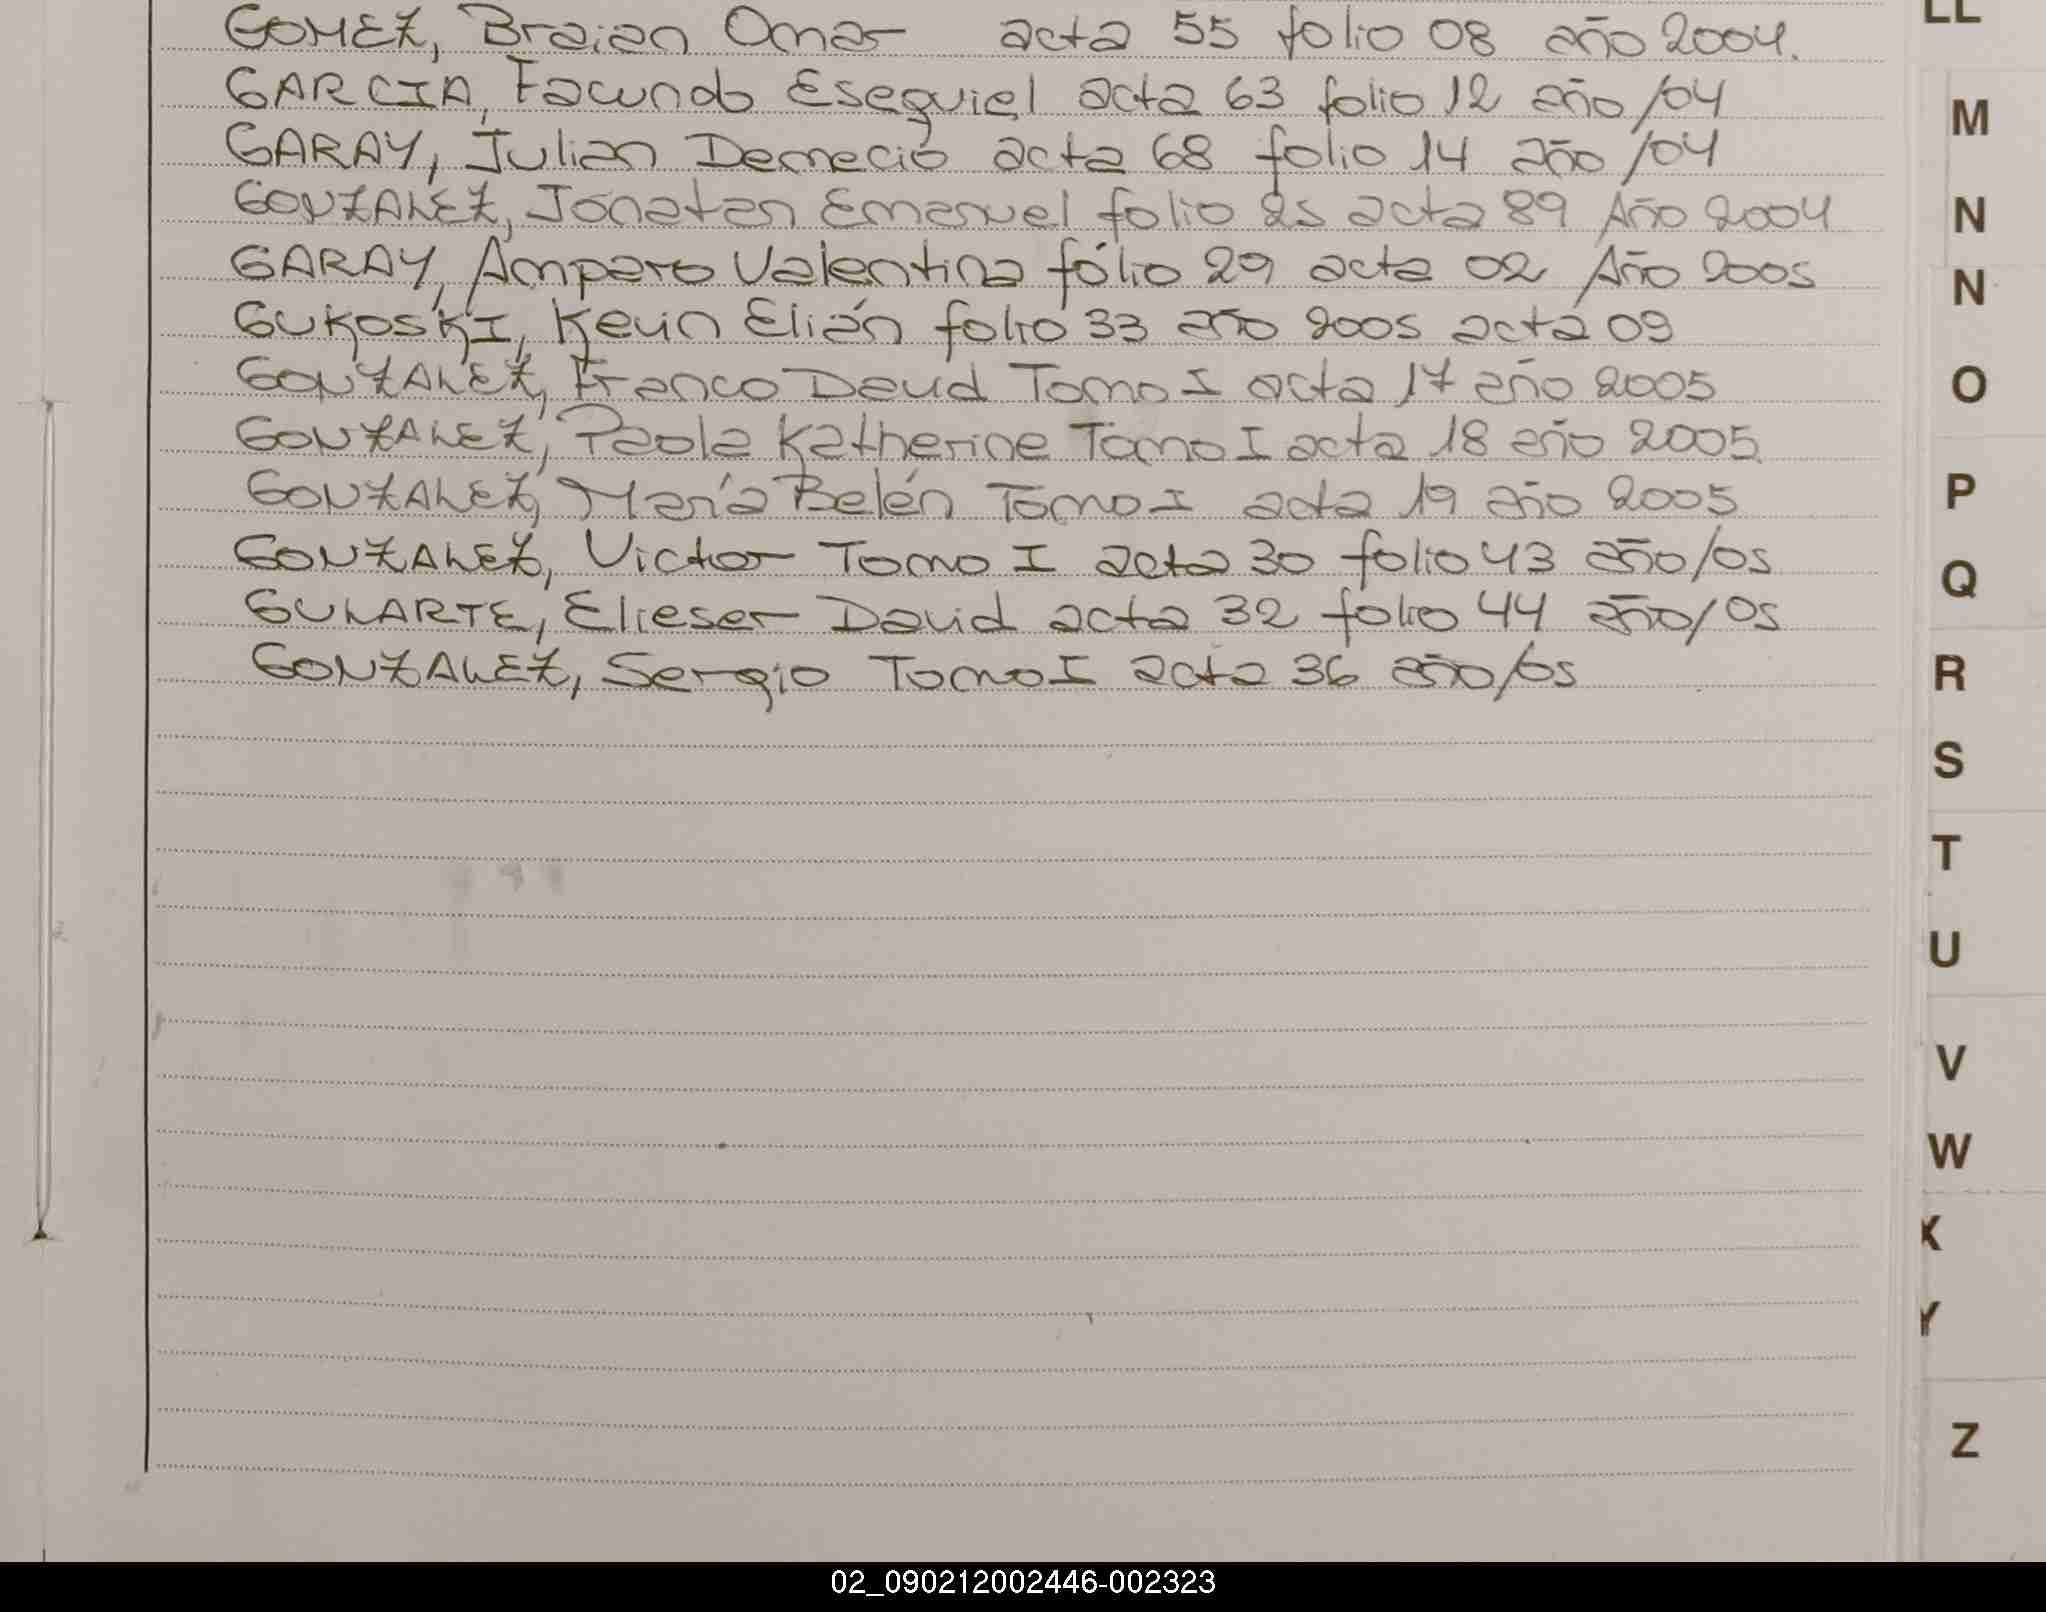 LL
GOMEZ, Braian Omar acta 55 folio 08 año 2004.
GARCIA, Facundo Esequiel acta 63 folio 12 año /04
GARAY, Julian Demecio acta 68 folio 14 año /04
GONZALEZ, Jonatan Emanuel folio 25 acta 89 Año 2004
GARAY, Amparo Valentina fólio 29 acta 02 Año 2005
GUKOSKI, Kevin Elián folio 33 año 2005 acta 09
GONZALEZ, Franco David Tomo I acta 17 año 2005
GONZALEZ, Paola Katherine Tomo I acta 18 año 2005
GONZALEZ, María Belén Tomo I acta 19 año 2005
GONZALEZ, Victor Tomo I acta 30 folio 43 año/05
GULARTE, Elieser David acta 32 folio 44 año/05
GONZALEZ, Sergio Tomo I acta 36 año/05
M
N
N
O
P
Q
R
S
T
U
V
W
X
Y
Z
02_090212002446-002323